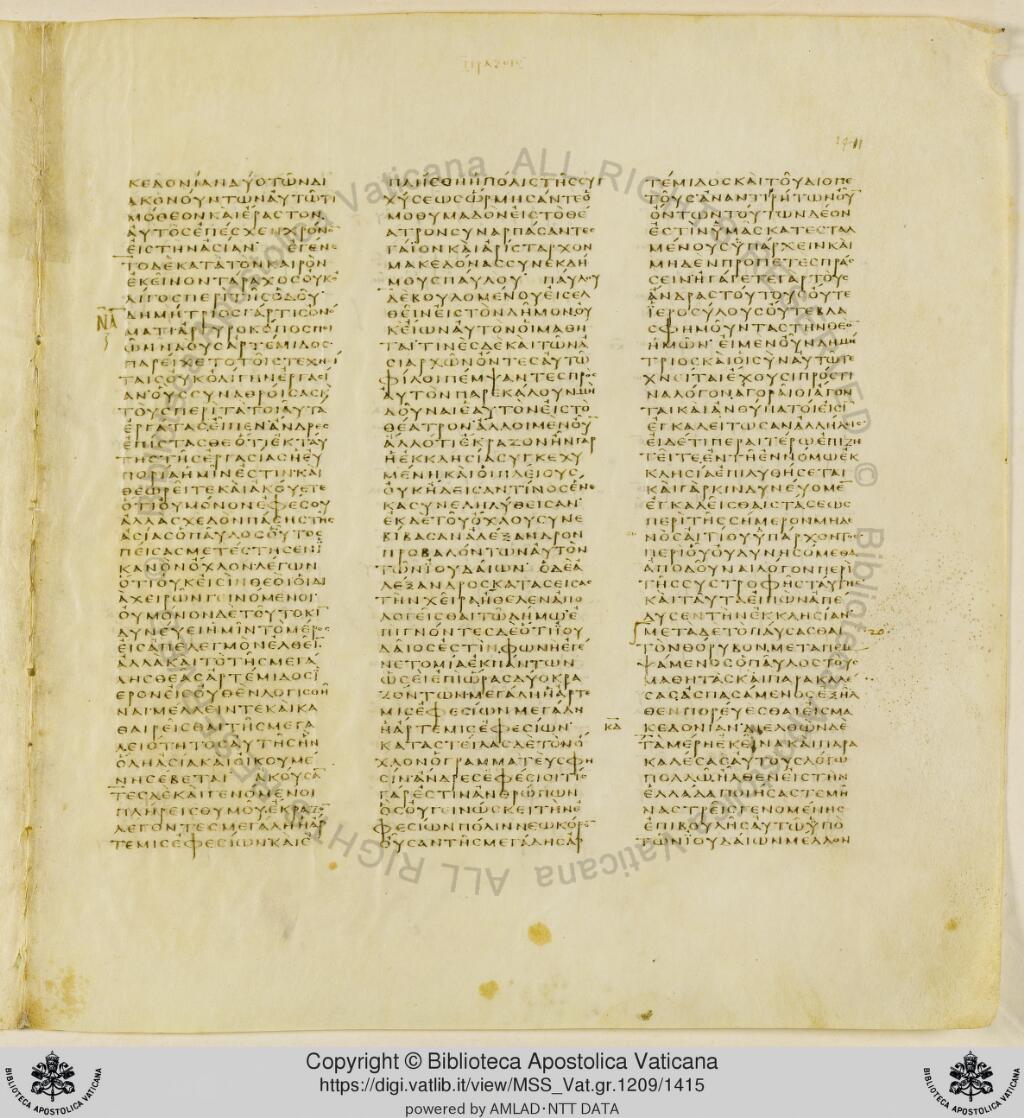 ΠΡΑΞΕΙΣ
ΚΕΔΟΝΙΑΝ ΔΥΟ ΤΩΝ ΔΙ
ΑΚΟΝΟΥΝΤΩΝ ΑΥΤΩ ΤΙ
ΜΟΘΕΟΝ ΚΑΙ ΕΡΑΣΤΟΝ
ΑΥΤΟΣ ΕΠΕΣΧΕΝ ΧΡΟΝΟ
ΕΙΣ ΤΗΝ ΑΣΙΑΝ ΕΓΕΝΕ
ΤΟ ΔΕ ΚΑΤΑ ΤΟΝ ΚΑΙΡΟΝ
ΕΚΕΙΝΟΝ ΤΑΡΑΧΟΣ ΟΥΚ Ο
ΛΙΓΟΣ ΠΕΡΙ ΤΗΣ ΟΔΟΥ
ΔΗΜΗΤΡΙΟΣ ΓΑΡ ΤΙΣ ΟΝΟ
ΜΑΤΙ ΑΡΓΥΡΟΚΟΠΟΣ ΠΟΙ
ΩΝ ΝΑΟΥΣ ΑΡΤΕΜΙΔΟΣ
ΠΑΡΕΙΧΕΤΟ ΤΟΙΣ ΤΕΧΝΙ
ΤΑΙΣ ΟΥΚ ΟΛΙΓΗΝ ΕΡΓΑΣΙ
ΑΝ ΟΥΣ ΣΥΝΑΘΡΟΙΣΑΣ Κ
ΤΟΥΣ ΠΕΡΙ ΤΑ ΤΟΙΑΥΤΑ
ΕΡΓΑΤΑΣ ΕΙΠΕΝ ΑΝΔΡΕΣ
ΕΠΙΣΤΑΣΘΕ ΟΤΙ ΕΚ ΤΑΥ
ΤΗΣ ΤΗΣ ΕΡΓΑΣΙΑΣ Η ΕΥ
ΠΟΡΙΑ ΗΜΙΝ ΕΣΤΙΝ ΚΑΙ
ΘΕΩΡΕΙΤΕ ΚΑΙ ΑΚΟΥΕΤΕ
ΟΤΙ ΟΥ ΜΟΝΟΝ ΕΦΕΣΟΥ
ΑΛΛΑ ΣΧΕΔΟΝ ΠΑΣΗΣ ΤΗΣ
ΑΣΙΑΣ Ο ΠΑΥΛΟΣ ΟΥΤΟΣ
ΠΕΙΣΑΣ ΜΕΤΕΣΤΗΣΕΝ Ι
ΚΑΝΟΝ ΟΧΛΟΝ ΛΕΓΩΝ
ΟΤΙ ΟΥΚ ΕΙΣΙΝ ΘΕΟΙ ΟΙ ΔΙ
Α ΧΕΙΡΩΝ ΓΕΙΝΟΜΕΝΟΙ
ΟΥ ΜΟΝΟΝ ΔΕ ΤΟΥΤΟ ΚΙ
ΔΥΝΕΥΕΙ ΗΜΙΝ ΤΟ ΜΕΡΟΣ
ΕΙΣ ΑΠΕΛΕΓΜΟΝ ΕΛΘΕΙ
ΑΛΛΑ ΚΑΙ ΤΟ ΤΗΣ ΜΕΓΑ
ΛΗΣ ΘΕΑΣ ΑΡΤΕΜΙΔΟΣ Ι
ΕΡΟΝ ΕΙΣ ΟΥΘΕΝ ΛΟΓΙΣΘΗ
ΝΑΙ ΜΕΛΛΕΙΝ ΤΕ ΚΑΙ ΚΑ
ΘΑΙΡΕΙΣΘΑΙ ΤΗΣ ΜΕΓΑ
ΛΕΙΟΤΗΤΟΣ ΑΥΤΗΣ ΗΝ
ΟΛΗ ΑΣΙΑ ΚΑΙ ΟΙΚΟΥΜΕ
ΝΗ ΣΕΒΕΤΑΙ ΑΚΟΥΣΑ
ΤΕΣ ΔΕ ΚΑΙ ΓΕΝΟΜΕΝΟΙ
ΠΛΗΡΕΙΣ ΘΥΜΟΥ ΕΚΡΑΖΟ
ΛΕΓΟΝΤΕΣ ΜΕΓΑΛΗ Η ΑΡ
ΤΕΜΙΣ ΕΦΕΣΙΩΝ ΚΑΙ Ε
ΠΛΗΣΘΗ Η ΠΟΛΙΣ ΤΗΣ ΣΥΓ
ΧΥΣΕΩΣ ΩΡΜΗΣΑΝ ΤΕ Ο
ΜΟΘΥΜΑΔΟΝ ΕΙΣ ΤΟ ΘΕ
ΑΤΡΟΝ ΣΥΝΑΡΠΑΣΑΝΤΕΣ
ΓΑΙΟΝ ΚΑΙ ΑΡΙΣΤΑΡΧΟΝ
ΜΑΚΕΔΟΝΑΣ ΣΥΝΕΚΔΗ
ΜΟΥΣ ΠΑΥΛΟΥ ΠΑΥΛΟΥ
ΔΕ ΒΟΥΛΟΜΕΝΟΥ ΕΙΣΕΛ
ΘΕΙΝ ΕΙΣ ΤΟΝ ΔΗΜΟΝ ΟΥ
Κ ΕΙΩΝ ΑΥΤΟΝ ΟΙ ΜΑΘΗ
ΤΑΙ ΤΙΝΕΣ ΔΕ ΚΑΙ ΤΩΝ Α
ΣΙΑΡΧΩΝ ΟΝΤΕΣ ΑΥΤΩ
ΦΙΛΟΙ ΠΕΜΨΑΝΤΕΣ ΠΡΟΣ
ΑΥΤΟΝ ΠΑΡΕΚΑΛΟΥΝ ΜΗ
ΔΟΥΝΑΙ ΕΑΥΤΟΝ ΕΙΣ ΤΟ
ΘΕΑΤΡΟΝ ΑΛΛΟΙ ΜΕΝ ΟΥ
ΑΛΛΟ ΤΙ ΕΚΡΑΖΟΝ ΗΝ ΓΑΡ
Η ΕΚΚΛΗΣΙΑ ΣΥΓΚΕΧΥ
ΜΕΝΗ ΚΑΙ ΟΙ ΠΛΕΙΟΥΣ
ΟΥΚ ΗΔΕΙΣΑΝ ΤΙΝΟΣ ΕΝΕ
ΚΑ ΣΥΝΕΛΗΛΥΘΕΙΣΑΝ
ΕΚ ΔΕ ΤΟΥ ΟΧΛΟΥ ΣΥΝΕ
ΒΙΒΑΣΑΝ ΑΛΕΞΑΝΔΡΟΝ
ΠΡΟΒΑΛΟΝΤΩΝ ΑΥΤΟΝ
ΤΩΝ ΙΟΥΔΑΙΩΝ Ο ΔΕ Α
ΛΕΞΑΝΔΡΟΣ ΚΑΤΑΣΕΙΣΑΣ
ΤΗΝ ΧΕΙΡΑ ΗΘΕΛΕΝ ΑΠΟ
ΛΟΓΕΙΣΘΑΙ ΤΩ ΔΗΜΩ Ε
ΠΙΓΝΟΝΤΕΣ ΔΕ ΟΤΙ ΙΟΥ
ΔΑΙΟΣ ΕΣΤΙΝ ΦΩΝΗ ΕΓΕ
ΝΕΤΟ ΜΙΑ ΕΚ ΠΑΝΤΩΝ
ΩΣΕΙ ΕΠΙ ΩΡΑΣ ΔΥΟ ΚΡΑ
ΖΟΝΤΩΝ ΜΕΓΑΛΗ Η ΑΡΤΕ
ΜΙΣ ΕΦΕΣΙΩΝ ΜΕΓΑΛΗ
Η ΑΡΤΕΜΙΣ ΕΦΕΣΙΩΝ
ΚΑΤΑΣΤΕΙΛΑΣ ΔΕ ΤΟΝ Ο
ΧΛΟΝ Ο ΓΡΑΜΜΑΤΕΥΣ ΦΗ
ΣΙΝ ΑΝΔΡΕΣ ΕΦΕΣΙΟΙ ΤΙΣ
ΓΑΡ ΕΣΤΙΝ ΑΝΘΡΩΠΩΝ
ΟΣ ΟΥ ΓΕΙΝΩΣΚΕΙ ΤΗΝ Ε
ΦΕΣΙΩΝ ΠΟΛΙΝ ΝΕΩΚΟΡΟ
ΟΥΣΑΝ ΤΗΣ ΜΕΓΑΛΗΣ ΑΡ
ΤΕΜΙΔΟΣ ΚΑΙ ΤΟΥ ΔΙΟΠΕ
ΤΟΥΣ ΑΝΑΝΤΙΡΗΤΩΝ ΟΥ
ΟΝΤΩΝ ΤΟΥΤΩΝ ΔΕΟΝ
ΕΣΤΙΝ ΥΜΑΣ ΚΑΤΕΣΤΑΛ
ΜΕΝΟΥΣ ΥΠΑΡΧΕΙΝ ΚΑΙ
ΜΗΔΕΝ ΠΡΟΠΕΤΕΣ ΠΡΑΣ
ΣΕΙΝ ΗΓΑΓΕΤΕ ΓΑΡ ΤΟΥΣ
ΑΝΔΡΑΣ ΤΟΥΤΟΥΣ ΟΥΤΕ
ΙΕΡΟΣΥΛΟΥΣ ΟΥΤΕ ΒΛΑ
ΣΦΗΜΟΥΝΤΑΣ ΤΗΝ ΘΕΟ
ΗΜΩΝ ΕΙ ΜΕΝ ΟΥΝ ΔΗΜΗ
ΤΡΙΟΣ ΚΑΙ ΟΙ ΣΥΝ ΑΥΤΩ ΤΕ
ΧΝΕΙΤΑΙ ΕΧΟΥΣΙ ΠΡΟΣ ΤΙ
ΝΑ ΛΟΓΟΝ ΑΓΟΡΑΙΟΙ ΑΓΟΝ
ΤΑΙ ΚΑΙ ΑΝΘΥΠΑΤΟΙ ΕΙΣΙ
ΕΓΚΑΛΕΙΤΩΣΑΝ ΑΛΛΗΛΟΙΣ
ΕΙ ΔΕ ΤΙ ΠΕΡΑΙΤΕΡΩ ΕΠΙΖΗ
ΤΕΙΤΕ ΕΝ ΤΗ ΕΝΝΟΜΩ ΕΚ
ΚΛΗΣΙΑ ΕΠΙΛΥΘΗΣΕΤΑΙ
ΚΑΙ ΓΑΡ ΚΙΝΔΥΝΕΥΟΜΕ
ΕΓΚΑΛΕΙΣΘΑΙ ΣΤΑΣΕΩΣ
ΠΕΡΙ ΤΗΣ ΣΗΜΕΡΟΝ ΜΗΔΕ
ΝΟΣ ΑΙΤΙΟΥ ΥΠΑΡΧΟΝΤΟΣ
ΠΕΡΙ ΟΥ ΟΥ ΔΥΝΗΣΟΜΕΘΑ
ΑΠΟΔΟΥΝΑΙ ΛΟΓΟΝ ΠΕΡΙ
ΤΗΣ ΣΥΣΤΡΟΦΗΣ ΤΑΥΤΗΣ
ΚΑΙ ΤΑΥΤΑ ΕΙΠΩΝ ΑΠΕ
ΛΥΣΕΝ ΤΗΝ ΕΚΚΛΗΣΙΑΝ
ΜΕΤΑ ΔΕ ΤΟ ΠΑΥΣΑΣΘΑΙ
ΤΟΝ ΘΟΡΥΒΟΝ ΜΕΤΑΠΕΜ
ΨΑΜΕΝΟΣ Ο ΠΑΥΛΟΣ ΤΟΥΣ
ΜΑΘΗΤΑΣ ΚΑΙ ΠΑΡΑΚΑΛΕ
ΣΑΣ ΑΣΠΑΣΑΜΕΝΟΣ ΕΞΗΛ
ΘΕΝ ΠΟΡΕΥΕΣΘΑΙ ΕΙΣ ΜΑ
ΚΕΔΟΝΙΑΝ ΔΙΕΛΘΩΝ ΔΕ
ΤΑ ΜΕΡΗ ΕΚΕΙΝΑ ΚΑΙ ΠΑΡΑ
ΚΑΛΕΣΑΣ ΑΥΤΟΥΣ ΛΟΓΩ
ΠΟΛΛΩ ΗΛΘΕΝ ΕΙΣ ΤΗΝ
ΕΛΛΑΔΑ ΠΟΙΗΣΑΣ ΤΕ ΜΗ
ΝΑΣ ΤΡΕΙΣ ΓΕΝΟΜΕΝΗΣ
ΕΠΙΒΟΥΛΗΣ ΑΥΤΩ ΥΠΟ
ΤΩΝ ΙΟΥΔΑΙΩΝ ΜΕΛΛΟΝ
ΝΑ
ΚΔ
20
Copyright © Biblioteca Apostolica Vaticana
https://digi.vatlib.it/view/MSS_Vat.gr.1209/1415
powered by AMLAD·NTT DATA
BIBLIOTECA APOSTOLICA VATICANA
BIBLIOTECA APOSTOLICA VATICANA